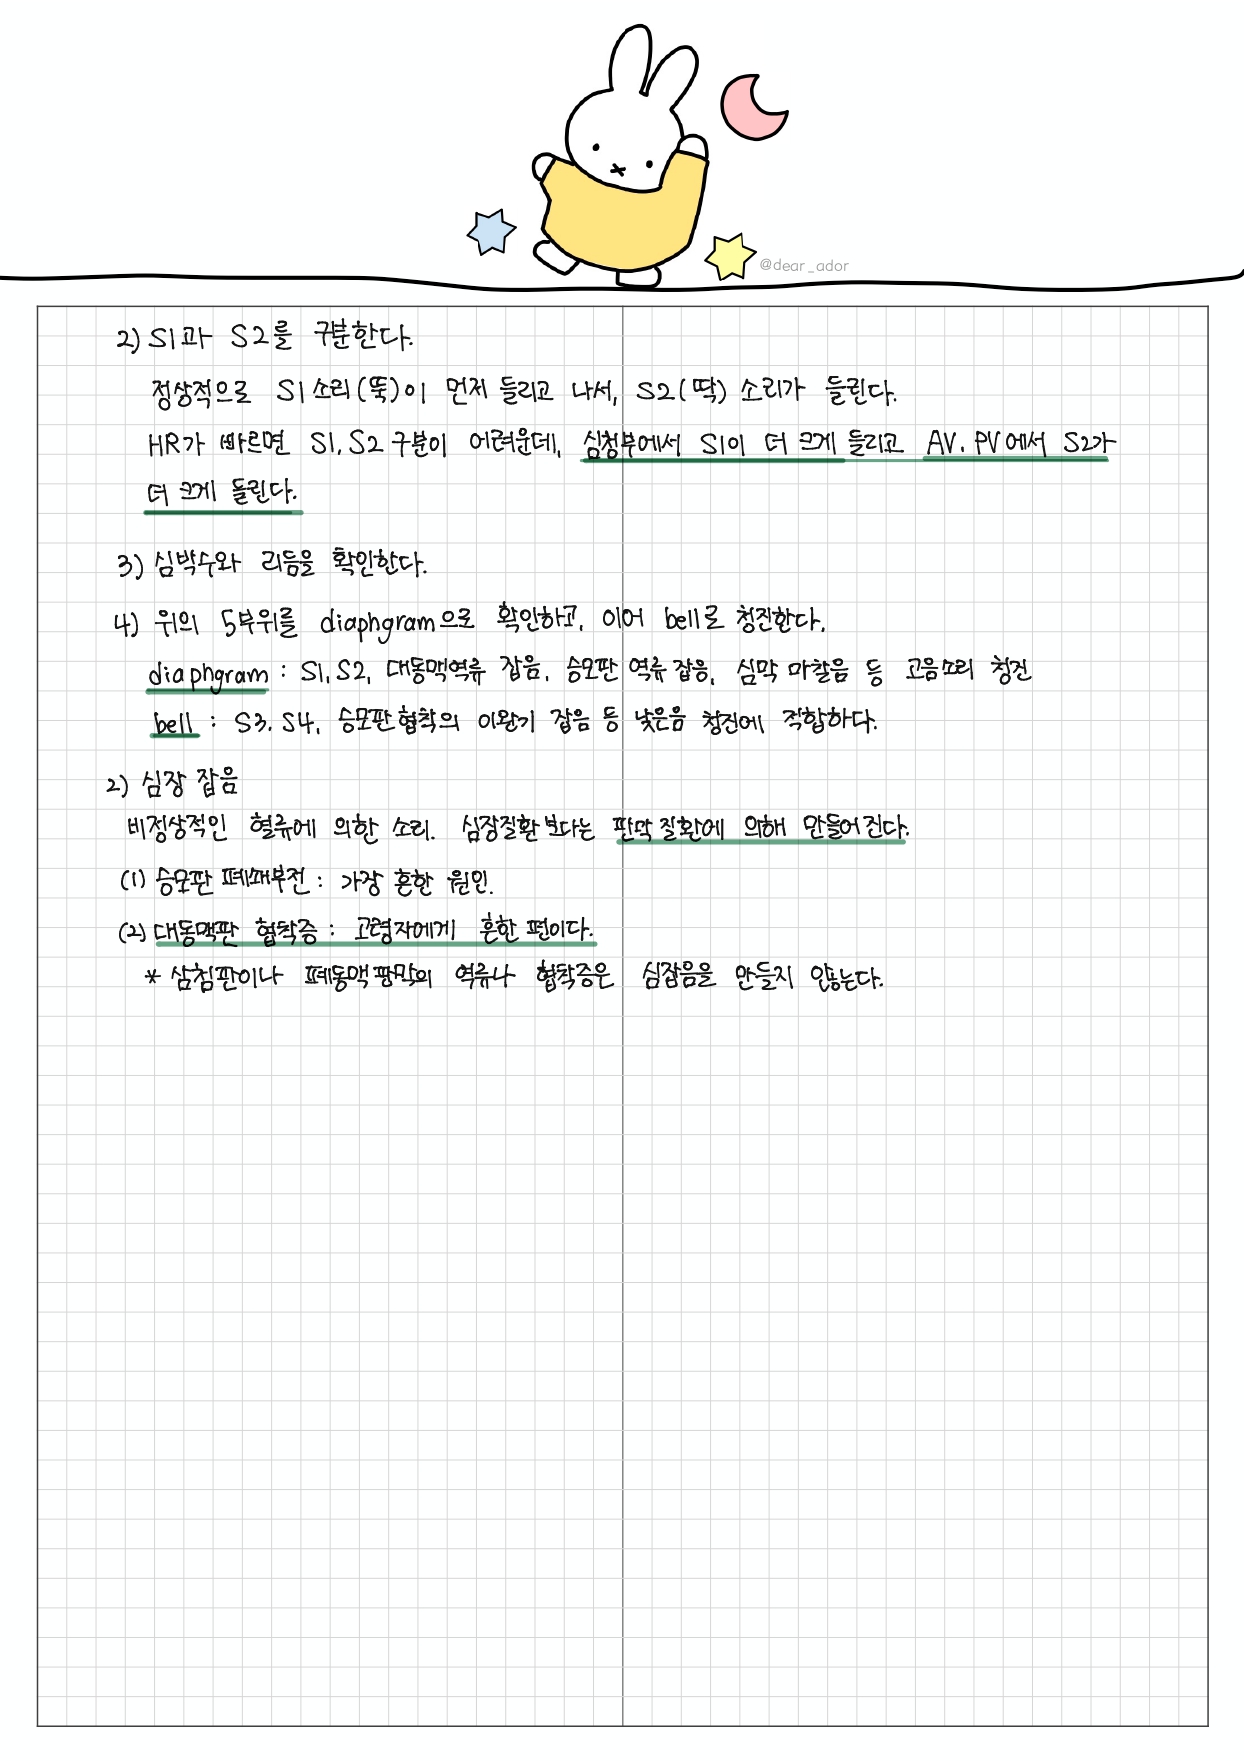 @dear_ador
2) S1과 S2를 구분한다.
정상적으로 S1 소리(뚝)이 먼저 들리고 나서, S2(딱) 소리가 들린다.
HR가 빠르면 S1, S2 구분이 어려운데, 심첨부에서 S1이 더 크게 들리고 AV, PV에서 S2가
더 크게 들린다.
3) 심박수와 리듬을 확인한다.
4) 위의 5부위를 diaphgram으로 확인하고, 이어 bell로 청진한다.
diaphgram : S1, S2, 대동맥역류 잡음, 승모판 역류 잡음, 심막 마찰음 등 고음소리 청진
bell : S3, S4, 승모판협착의 이완기 잡음 등 낮은음 청진에 적합하다.
2) 심장 잡음
비정상적인 혈류에 의한 소리. 심장질환보다는 판막질환에 의해 만들어진다.
(1) 승모판 폐쇄부전 : 가장 흔한 원인.
(2) 대동맥판 협착증 : 고령자에게 흔한 편이다.
* 삼첨판이나 폐동맥판막의 역류나 협착증은 심잡음을 만들지 않는다.